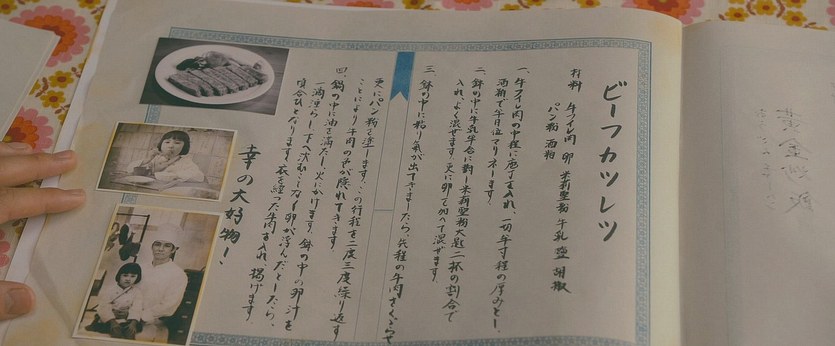 ビーフカツレツ
材料 牛フイレ肉 卵 米莉堅粉 牛乳 塩 胡椒
パン粉 酒粕
一、牛フイレ肉の中程に庖丁を入れ、一切年寸程の厚みとし、
酒粕で半日位マリネーします。
二、鉢の中に牛乳半合に対し米莉堅粉大匙二杯の割合で
入れ、よく混ぜます。更に卵も加へて混ぜます。
三、鉢の中に粘り気が出てきましたら、先程の牛肉をくぐらせ
更にパン粉を塗します。この行程を二度三度繰り返す
ことにより牛肉の色が隠れてきます。
四、鍋の中に油を満たし、火にかけます。鉢の中の卵汁を
一滴滑らし、下へ沈むことなく卵が浮んだとしたら、
頃合ひとなります。衣を纏った牛肉を入れ、揚げます。
幸の大好物!